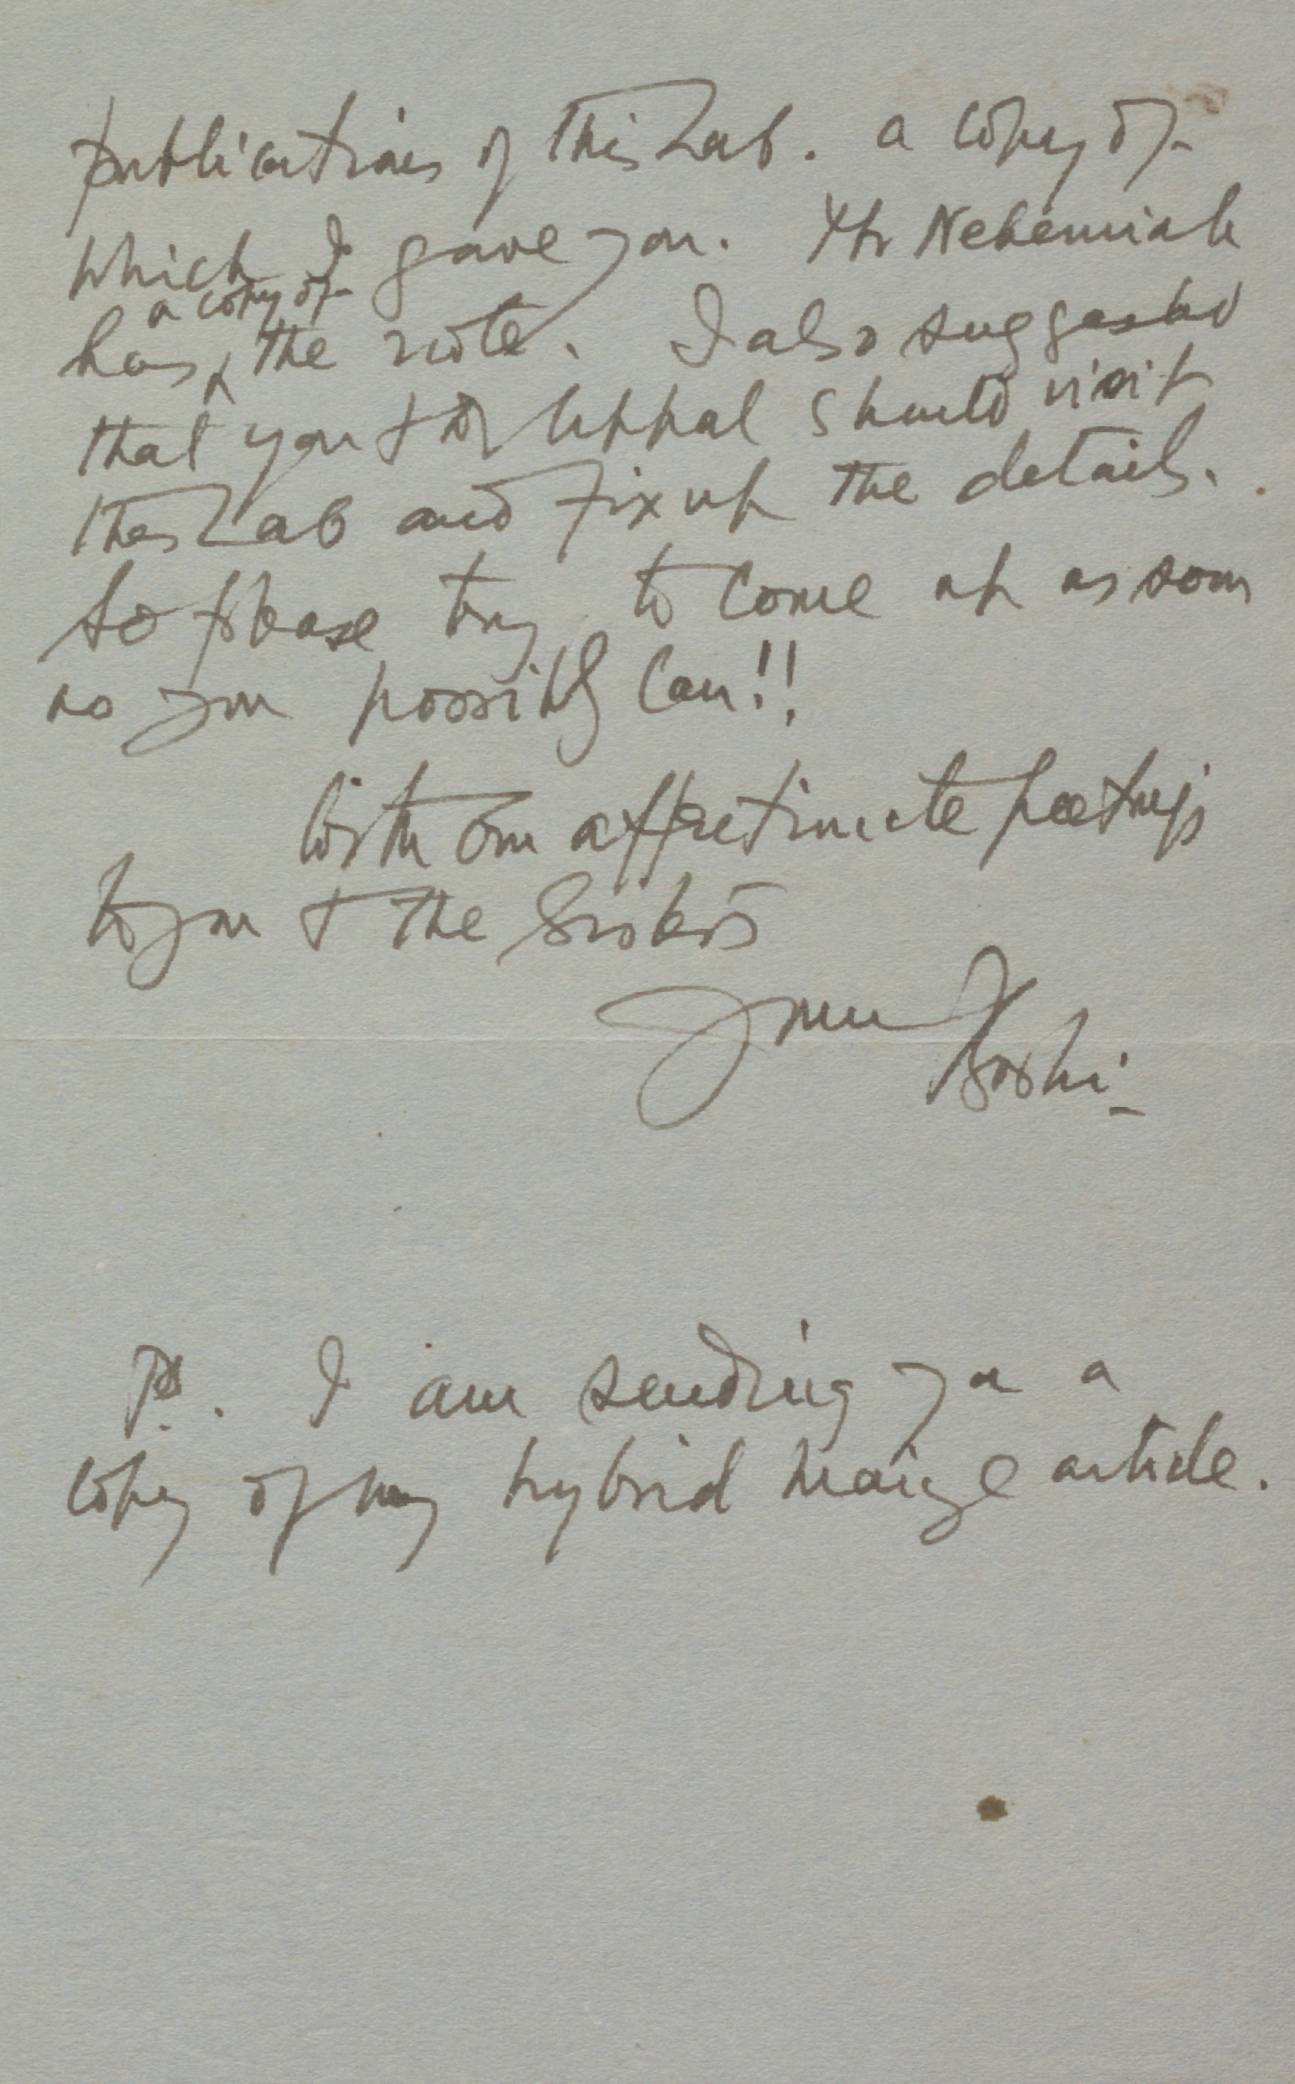 publications of this Lab. a copy of
which I gave you. Mr Nehemiah
has a copy of the note. I also suggested
that you + Dr Uppal should visit
the Lab and fix up the details.
So please try to come up as soon
as you possibly can!!
With our affectionate greetings
to you + the Sisters
Your
Boshi
P.S. I am sending you a
copy of my hybrid maize article.